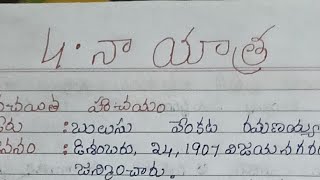 4. నా యాత్ర
రచయిత పరిచయం
పేరు : బులుసు వేంకట రమణయ్య
జననం : డిశంబరు, 24, 1907 విజయనగరం
జన్మించారు.